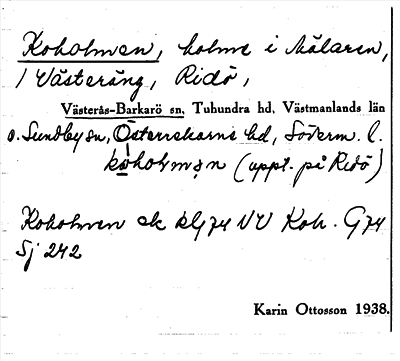 Koholmen, holme i Mälaren,
/ Västeräng, Ridö,
Västerås-Barkarö sn, Tuhundra hd, Västmanlands län
o. Sundby sn, Österrekarne hd, Söderm. l.
koholmən (uppt. på Ridö)
Koholmen ek klg 74 NV Koh. G 74
Sj 242
Karin Ottosson 1938.